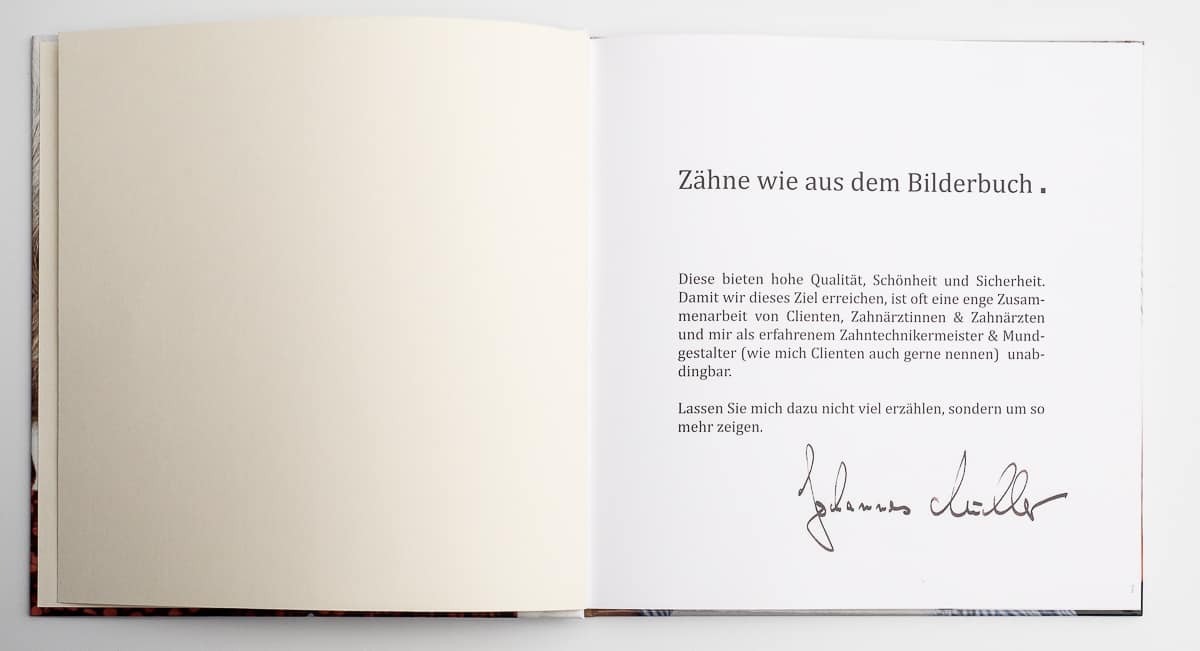 Zähne wie aus dem Bilderbuch .
Diese bieten hohe Qualität, Schönheit und Sicherheit.
Damit wir dieses Ziel erreichen, ist oft eine enge Zusam-
menarbeit von Clienten, Zahnärztinnen & Zahnärzten
und mir als erfahrenem Zahntechnikermeister & Mund-
gestalter (wie mich Clienten auch gerne nennen) unab-
dingbar.
Lassen Sie mich dazu nicht viel erzählen, sondern um so
mehr zeigen.
Johannes Müller